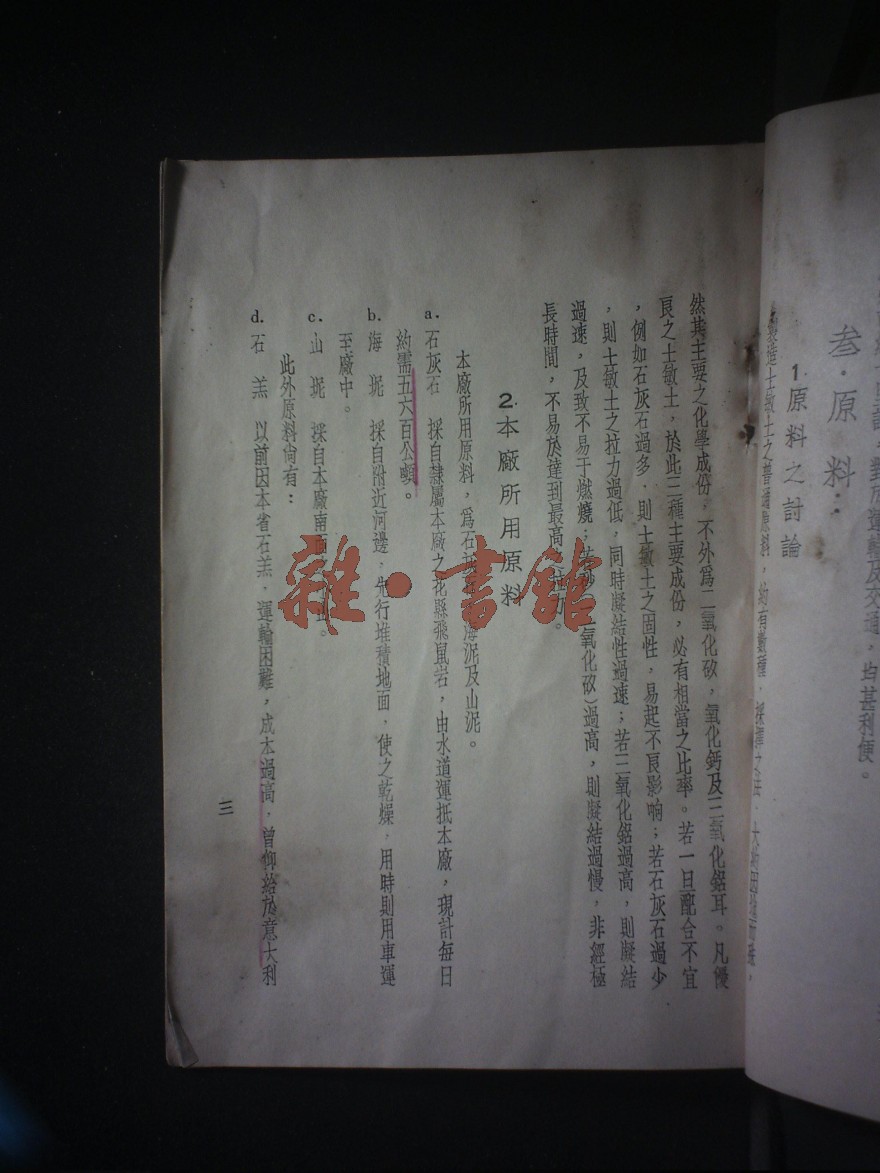 叁．原料：
1.原料之討論
然其主要之化學成份，不外為二氧化矽，氧化鈣及三氧化鋁耳。凡優
良之士敏土，於此三種主要成份，必有相當之比率。若一旦配合不宜
，例如石灰石過多，則士敏土之固性，易起不良影响；若石灰石過少
，則士敏土之拉力過低，同時凝結性過速；若三氧化鋁過高，則凝結
過速，及致不易于燃燒；二氧化矽）過高，則凝結過慢，非經極
長時間，不易於達到最高拉力。
2.本廠所用原料
本廠所用原料，為石灰石海泥及山泥。
a．石灰石　採自隸屬本廠之花縣飛鼠岩，由水道運抵本廠，現計每日
約需五六百公噸。
b．海坭　採自附近河邊，先行堆積地面，使之乾燥，用時則用車運
至廠中。
c．山坭　採自本廠南面。
此外原料尙有：
d．石羔　以前因本省石羔，運輸困難，成本過高，曾仰給於意大利
三
雜·書館